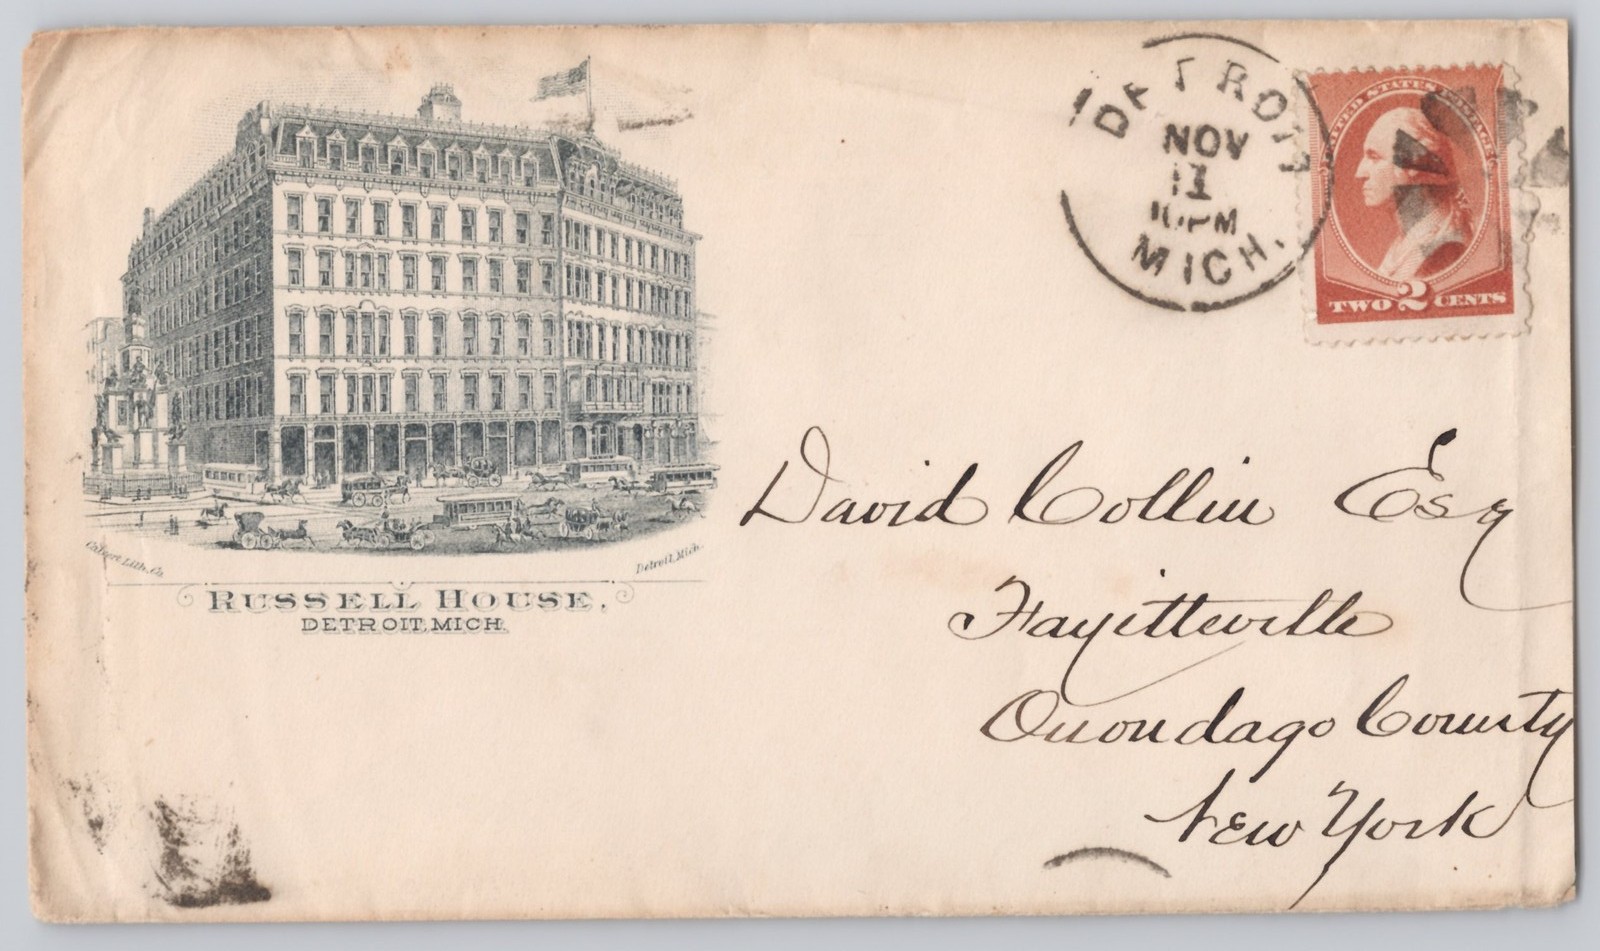 DETROIT
NOV
11
10PM
MICH.
UNITED STATES POSTAGE
TWO 2 CENTS
Calvert Lith. Co.
Detroit, Mich.
RUSSELL HOUSE,
DETROIT, MICH.
David Collin Esq
Fayetteville
Onondago County
New York